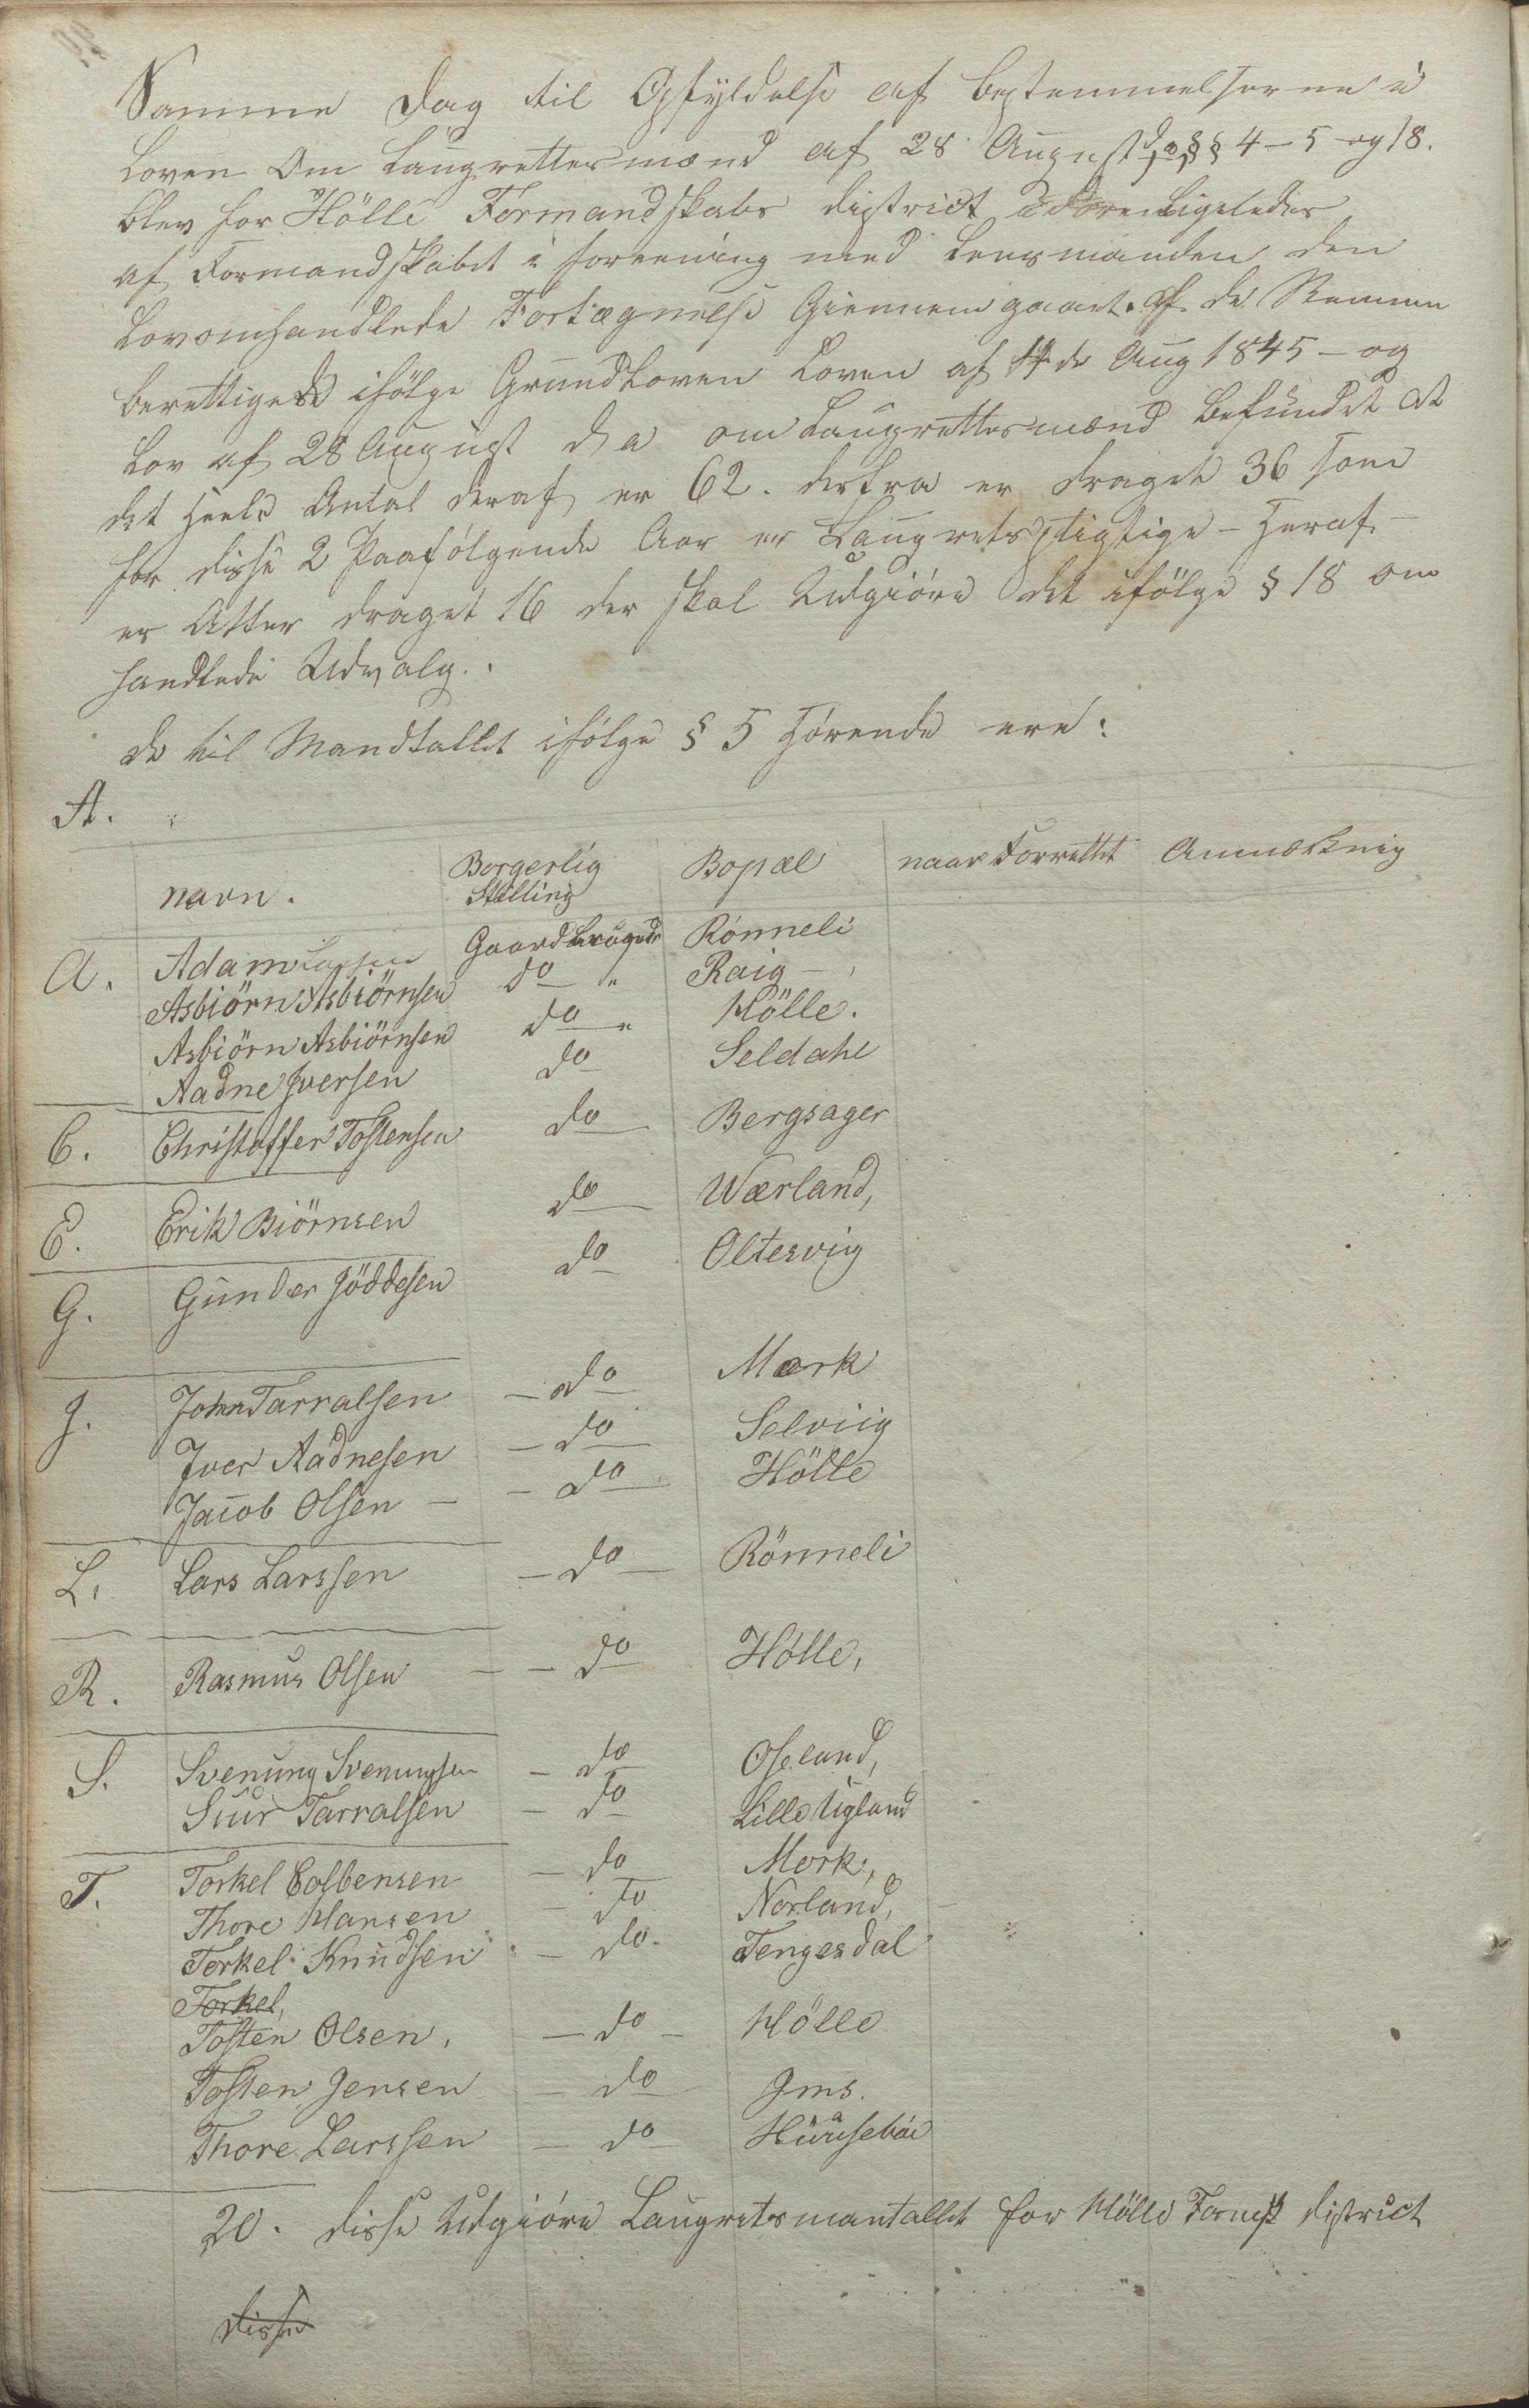 Samme Dag til Opfyldelse af bestemmelserne i
Loven Om Laugrettesmænd af 28 August d.a. §§ 4-5 og 18.
blev for Hölle Formandskabs district Ligeledes
af Formandskabet i foreening med Lensmanden den
Lovomhandlede Fortægnelse Giennemgaaet. Af de Stemme
berettigede ifölge Grundloven Loven af 4de Aug 1845 - og
Lov af 28 August d a om Laugrettesmænd befundet at
det Heele Antal deraf er 62. derfra er draget 36 som
for disse 2 Paafölgende Aar er Laugretspligtige - Heraf -
er Atter draget 16 der skal Udgiöre det ifölge § 18 om
handlede Udvalg.
de til Mandtallet ifölge § 5 Hörende ere:
A.
navn. Borgerlig Stilling Bopæl naar Forrettet Anmærknig
A. Adam Gaardbruger Rönneli
Asbiörn Asbiörnsen do " Raig -
Asbiörn Asbiörnsen do " Hölle.
Aadne Iversen do Seldahl
C. Christoffer Tostensen do Bergsager
E. Erik Biörnsen do Wærland,
G. Gunder Jöddesen do Oltesvig
J. John Tarralsen - do Mærk
Iver Aadnesen - do Selviig
Jacob Olsen - - do Hölle
L. Lars Larssen - do Rönneli
R. Rasmus Olsen - - do Hölle,
S. Svenung Svenungsen - do Oseland,
Siur Tarralsen - do Lille Uigland
T. Torkel Colbensen - do Mork,
Thore Hansen - do Norland,
Torkel Knudsen - do - Tengesdal
Torkel,
Tosten Olsen, - do - Hölle
Tosten Jensen - do Ims.
Thore Larssen - do Huuseböe
20. disse Udgiöre Laugretsmantallet for Hölle Formsk district
disse